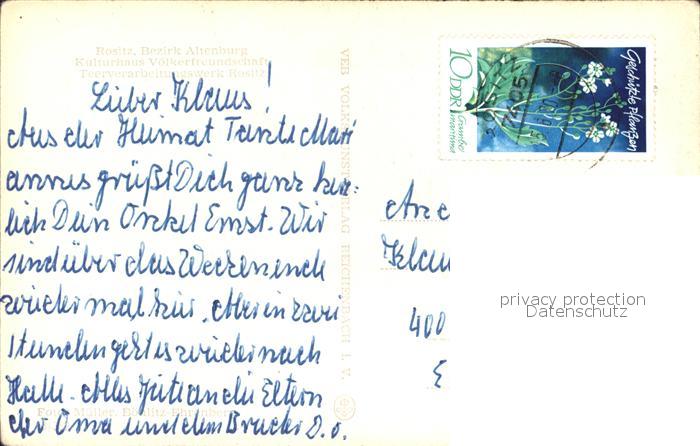 Rositz, Bezirk Altenburg
Kulturhaus Völkerfreundschaft
Teerverarbeitungswerk Rositz
Lieber Klaus!
Aus der Heimat Tante Mari
annes grüßt Dich ganz herz=
lich Dein Onkel Ernst. Wir
sind über das Wochenende
wieder mal hier. Aber in zwei
Stunden geht es wieder nach
Halle. Alles Gute an die Eltern
der Oma und dem Bruder D. O.
Foto Müller, Böhlitz-Ehrenberg
VEB VOLKSKUNSTVERLAG REICHENBACH I. V.
Geschützte Pflanzen
10 DDR
Crambe
maritima
An
Klau
400
privacy protection
Datenschutz